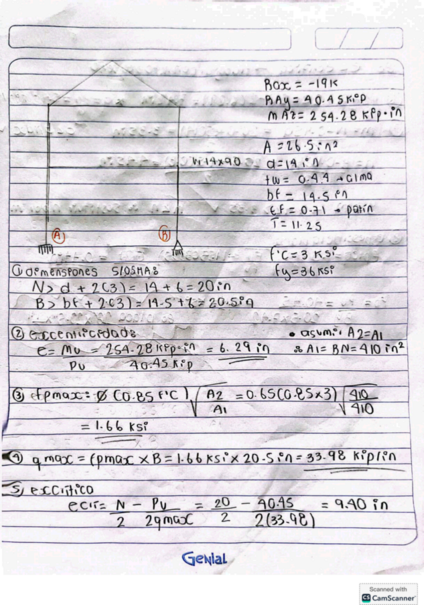 RAx = -19K
RAy = 40.45 Kip
MAz = 254.28 Kip·in
A = 26.5 in²
d = 14 in
W 14x90
tw = 0.44 → alma
bf = 14.5 in
tf = 0.71 → patin
T = 11.25
A
B
f'c = 3 KSi
fy = 36 KSi
① dimensiones
N > d + 2(3) = 14 + 6 = 20 in
B > bf + 2(3) = 14.5 + 6 = 20.5 in
② excentricidade
• asumir A2 = A1
e = Mu/Pu = 254.28 Kip·in/40.45 Kip = 6.29 in
∴ A1 = BN = 410 in²
③ fpmax = Ø (0.85 F'C) √A2/A1 = 0.65(0.85x3) √410/410
= 1.66 KSi
④ qmax = fpmax x B = 1.66 KSi x 20.5 in = 33.98 Kip/in
⑤ ex critico
ecrit = N/2 - Pu/2qmax = 20/2 - 40.45/2(33.98) = 9.40 in
Genial
Scanned with
CS CamScanner